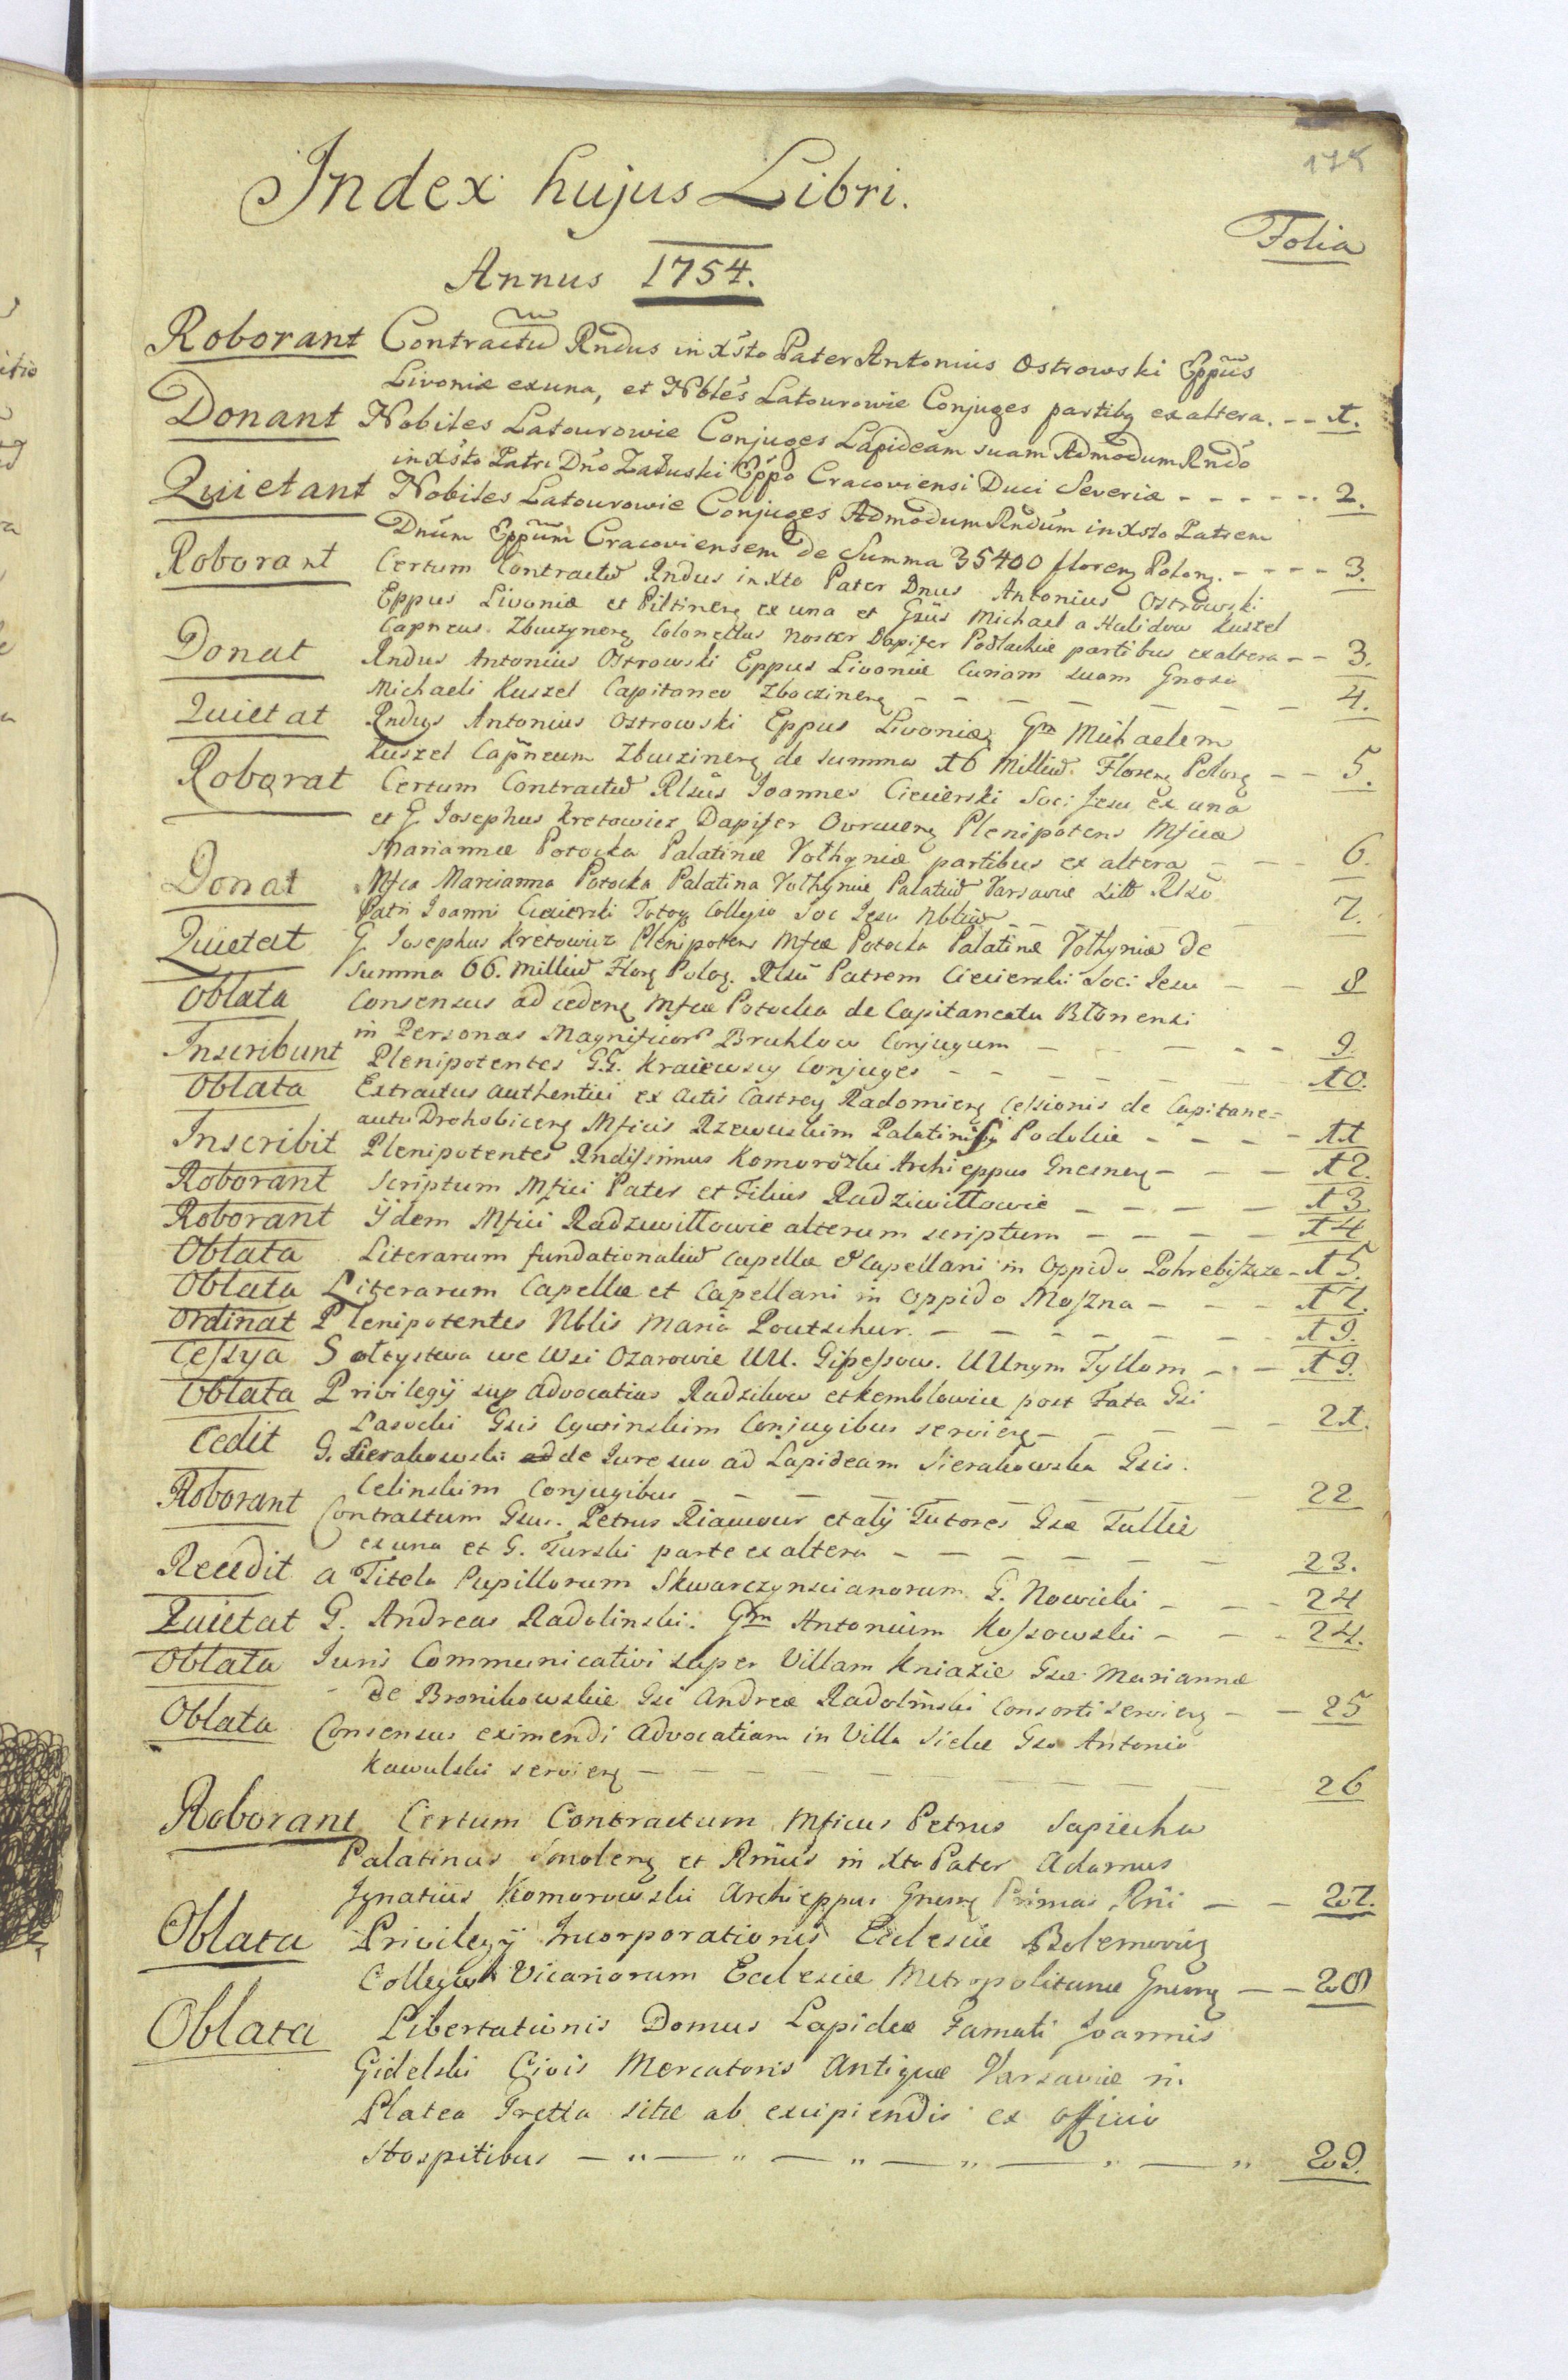 175
Index hujus Libri.
Folia
Annus 1754.
Roborant Contractū Rndus in Xsto Pater Antonius Ostrowski Eppūs
Livoniæ ex una, et Nbles Latourowie Conjuges partibq ex altera. - - 1.
Donant Nobiles Latourowie Conjuges Lapideam suam Admodum Rndo
in Xsto Patri Dno Załuski Eppo Cracoviensi Duci Severiæ - - - - - - 2.
Quietant Nobiles Latourowie Conjuges Admodum Rndum in Xsto Patrem
Dnum Eppum Cracoviensem de Summa 35400 floreng Polong. - - - - 3.
Roborant Certum Contractū Rndus in Xto Pater Dnus Antonius Ostrowski
Eppus Livoniæ et Piltineng ex una et Gsūs Michael a Halidow Kuszel
Capneus Zbuczyneng Colonellus noster Dapifer Podlachiæ partibus ex altera - - 3.
Donat Rndus Antonius Ostrowski Eppus Livoniæ Curiam suam Gnoso
Michaeli Kuszel Capitaneo Zbuczineng - - - - - - - 4.
Quietat Rndus Antonius Ostrowski Eppus Livoniæ Gm Michaelem
Kuszel Capneum Zbuczineng de summa 16 Milliū Floreng Polong - - 5.
Roborat Certum Contractū Rlsus Joannes Ciecierski Soci Jesu ex una
et G. Josephus Kretowicz Dapifer Ovruceng Plenipotens Mficæ
Mariannæ Potocka Palatinæ Volhyniæ partibus ex altera - - - 6.
Donat Mfca Marianna Potocka Palatina Volhyniæ Palatiū Varsaviæ Sitū Rlso
Patri Joanni Ciecierski Totoq Collegio Soc Jesu Nbliū - - - - 7.
Quietat G. Josephus Kretowicz Plenipotens Mfcæ Potocka Palatinæ Volhyniæ de
Summa 66. Milliū Florq Polog. Rlsū Patrem Ciecierski Soci: Jesu - - 8
Oblata Consensus ad cedeng Mfcæ Potocka de Capitaneatu Błonensi
in Personas Magnificorū Bruhlow Conjugum - - - - - 9.
Inscribunt Plenipotentes G.G. Kraiewscy Conjuges - - - - - - 10.
Oblata Extractus authentici ex Actis Castreng Radomieng Cessionis de Capitane=
autu Drohobiceng Mficis Rzewuskim Palatinis Podoliæ - - - - 11
Inscribit Plenipotentes Rndissimus Komorowski Archieppus Gnesneng - - - 12.
Roborant Scriptum Mfici Pater et Filius Radziwiłłowie - - - - 13
Roborant Ijdem Mfici Radziwiłłowie alterum scriptum - - - - 14
Oblata Literarum fundationaliū Capellæ et Capellani in Oppido Pohrebiszcze - 15.
Oblata Literarum Capellæ et Capellani in Oppido Moszna - - - 17.
Ordinat Plenipotentes Nblis Maria Poutschur. - - - - - - - 19.
Cessya Sołtystwa we Wsi Ozarowie UU. Gisessow. UUnym Tyllom - - - 19.
Oblata Privilegij sup Advocatias Radzikow et Kemblowice post Fata Gsi
Lasocki Gsis Cywinskim Conjugibus servieng - - - - - 21.
Cedit G. Sierakowski de Jure suo ad Lapideam Sierakowska Gsis.
Celinskim Conjugibus - - - - - - - 22
Roborant Contractum Gsus. Petrus Riaucour et alij Tutores Gsæ Tulliæ
ex una et G. Turski parte ex altera - - - - - - 23.
Recedit a Titela Pupillorum Skwarczynscianorum G. Nowicki - - - 24
Quietat G. Andreas Radolinski. Gm Antonium Kossowski - - - 24.
Oblata Juris Communicativi super Villam Kniazie Gsæ Mariannæ
de Bronikowskie Gsi Andreæ Radolinski Consorti servieng - - 25
Oblata Consensus eximendi Advocatiam in Villa Sielce Gso Antonio
Kawulski servieng - - - - - - - - - - 26
Roborant Certum Contractum Mficus Petrus Sapiecha
Palatinus Smoleng et Rmus in Xto Pater Adamus
Ignatius Komorowski Archieppus Gneng Primas Rni - - 27.
Oblata Privilegij Incorporationis Ecclesiæ Bolemoviq
Collegio Vicariorum Ecclesiæ Metropolitanæ Gneng - - 28
Oblata Libertationis Domus Lapideæ Famati Joannis
Gidelski Civis Mercatoris Antiquæ Varsaviæ in
Platea Pretta sitæ ab excipiendis ex officio
Hospitibus - " - " - " - " - " - " 29.